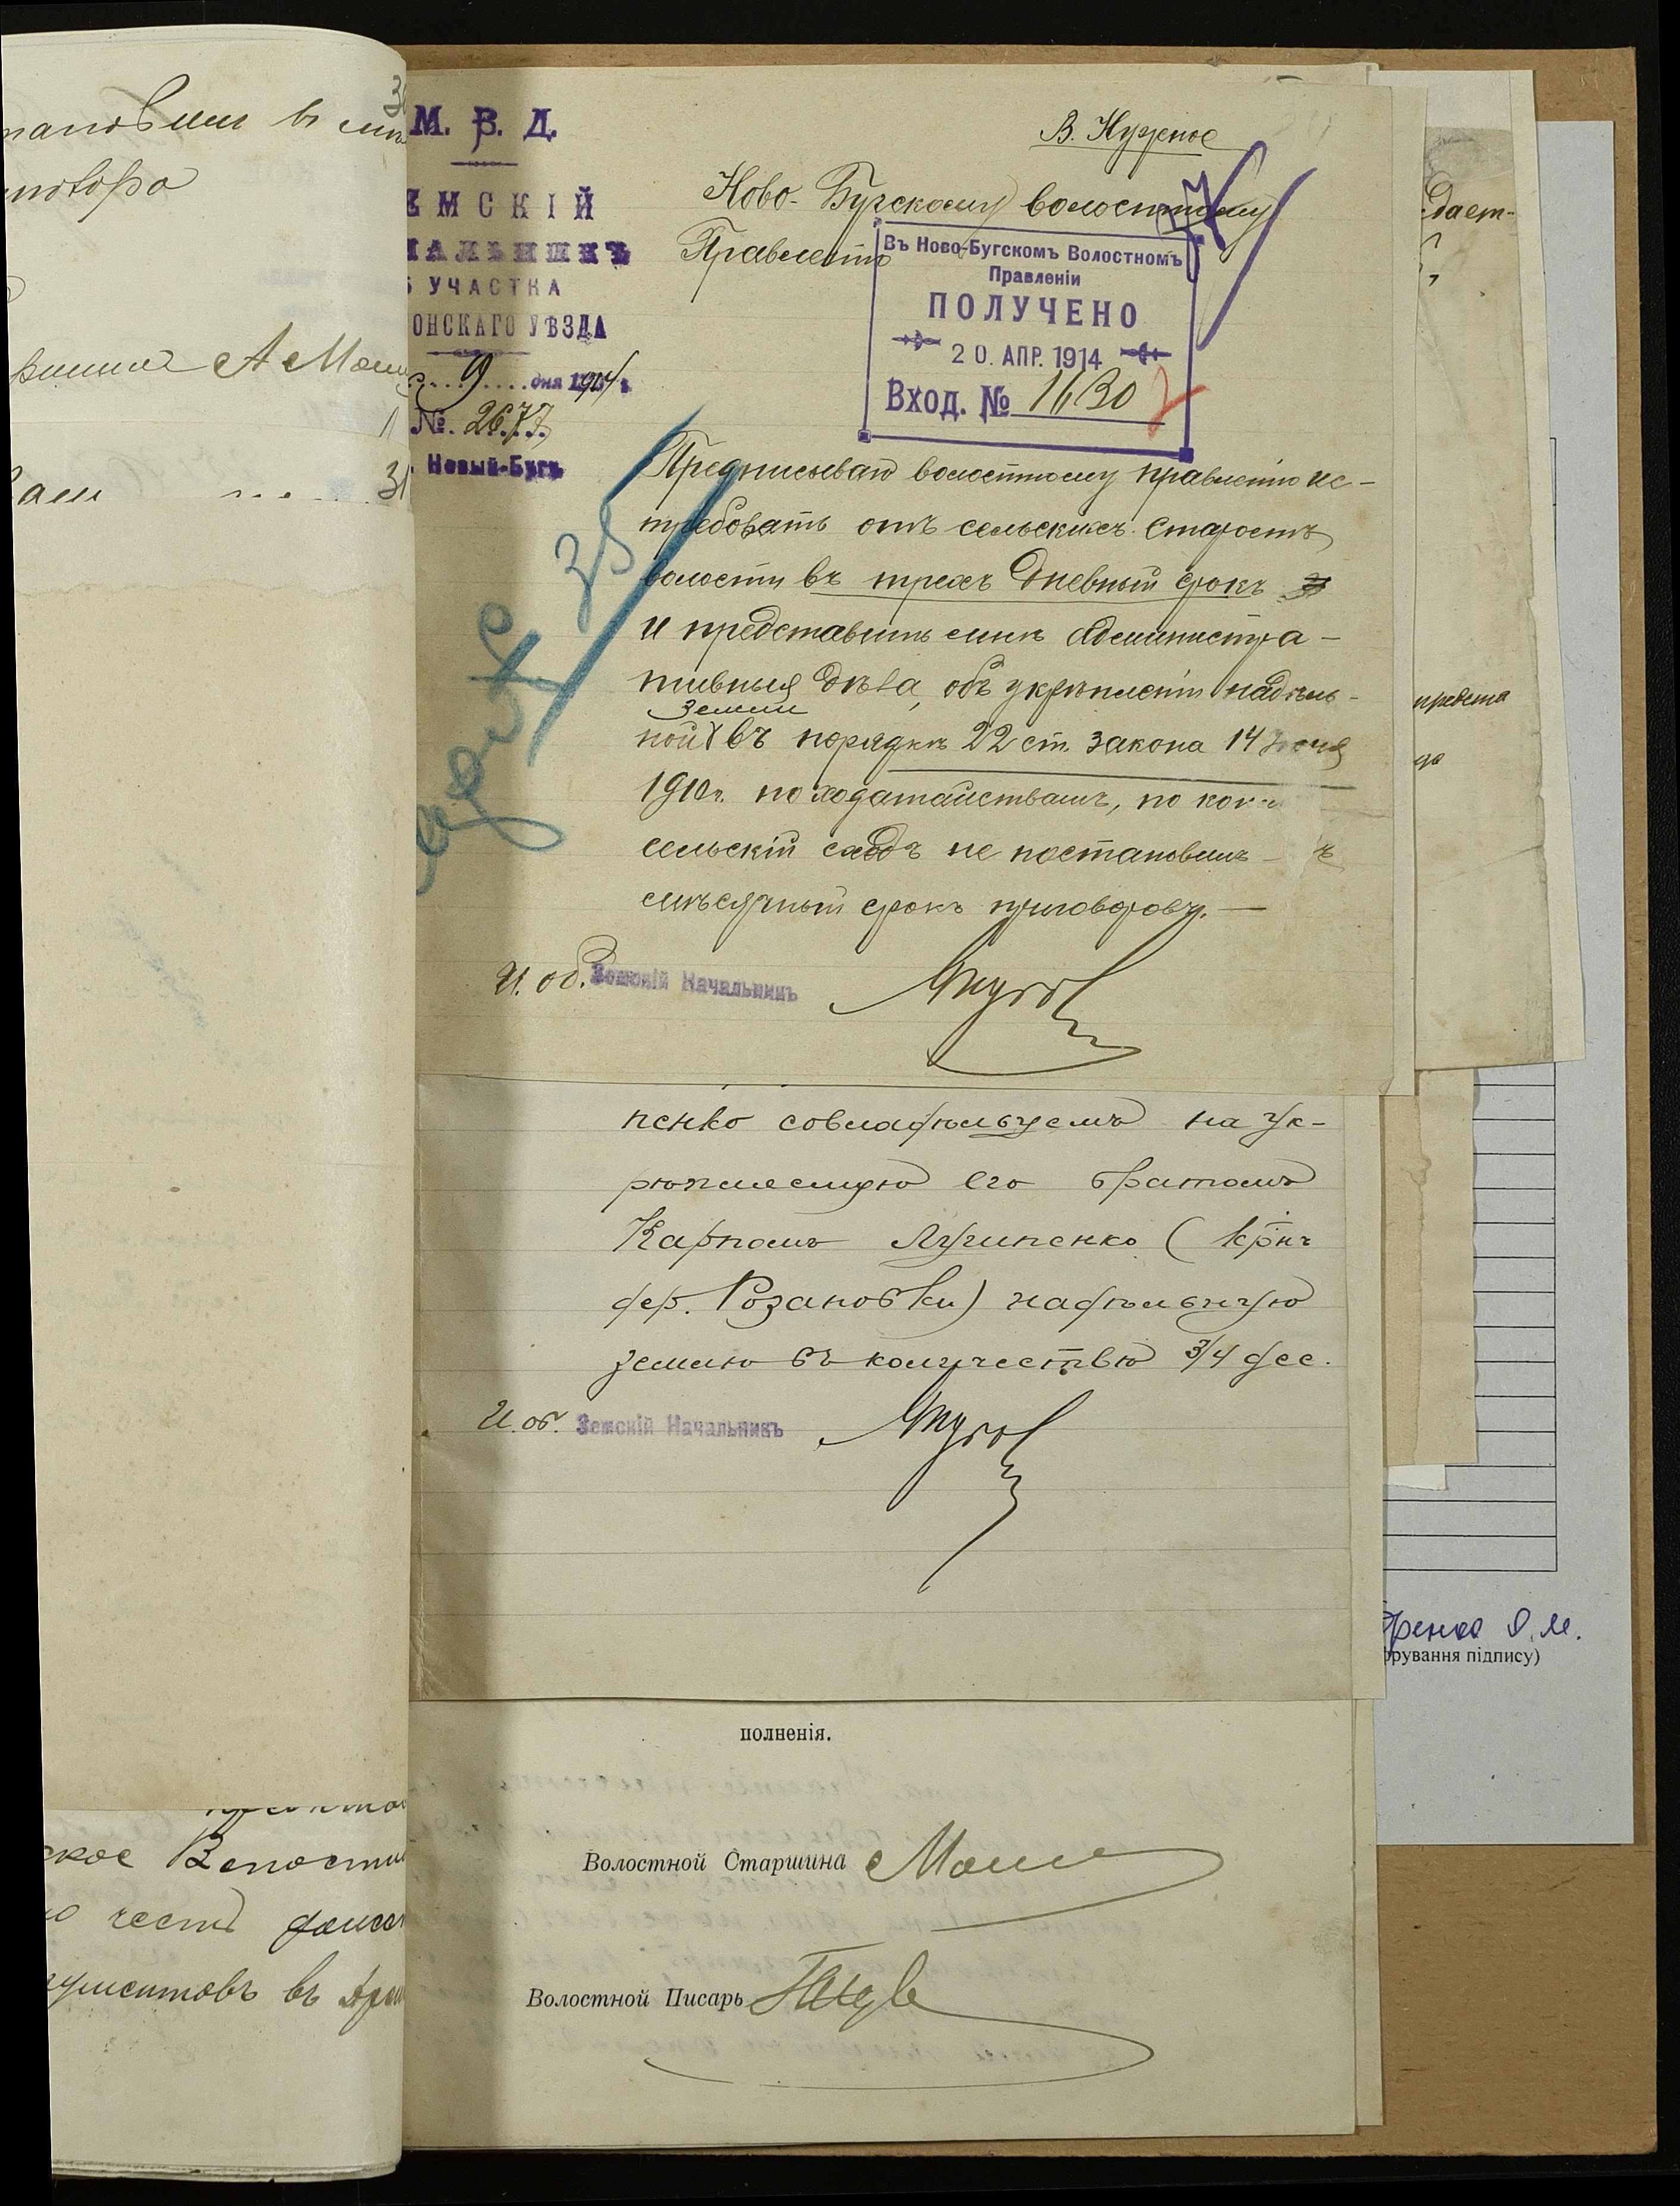 М. В. Д.
ЕМСКІЙ
НАЛЬНИКЪ
УЧАСТКА
ОНСКАГО УѢЗДА
9 дня 1914 г.
№. 2677
Новый-Бугъ
В. Нужное
Ново-Бугскому волостному
Правленію
Въ Ново-Бугскомъ Волостномъ
Правленіи
ПОЛУЧЕНО
20. АПР. 1914
Вход. № 1630
Предписываю волостному правленію ис-
требовать отъ сельскихъ старостъ
волости въ трехъ дневный срокъ
и представить мнѣ администра-
тивныя дѣла, объ укрѣпленіи надѣль-
ной земли въ порядкѣ 22 ст. закона 14 Іюня
1910г. по ходатайствамъ, по кои
сельскій сходъ не постановилъ
мѣсячный срокъ приговоровъ.—
И. об. Земскій Начальникъ
пенко совладѣльцемъ на ук-
рѣпляемую его братомъ
Карпомъ Лупипенко (крнъ
дер. Розановки) надѣльную
землю въ количествѣ 3/4 дес.
И. об. Земскій Начальникъ
полненія.
Волостной Старшина
Волостной Писарь
становилъ въ
говора
А
31
ское Волостн
честь
ументовъ въ
дает-
предста
ренко О. М.
рування підпису)